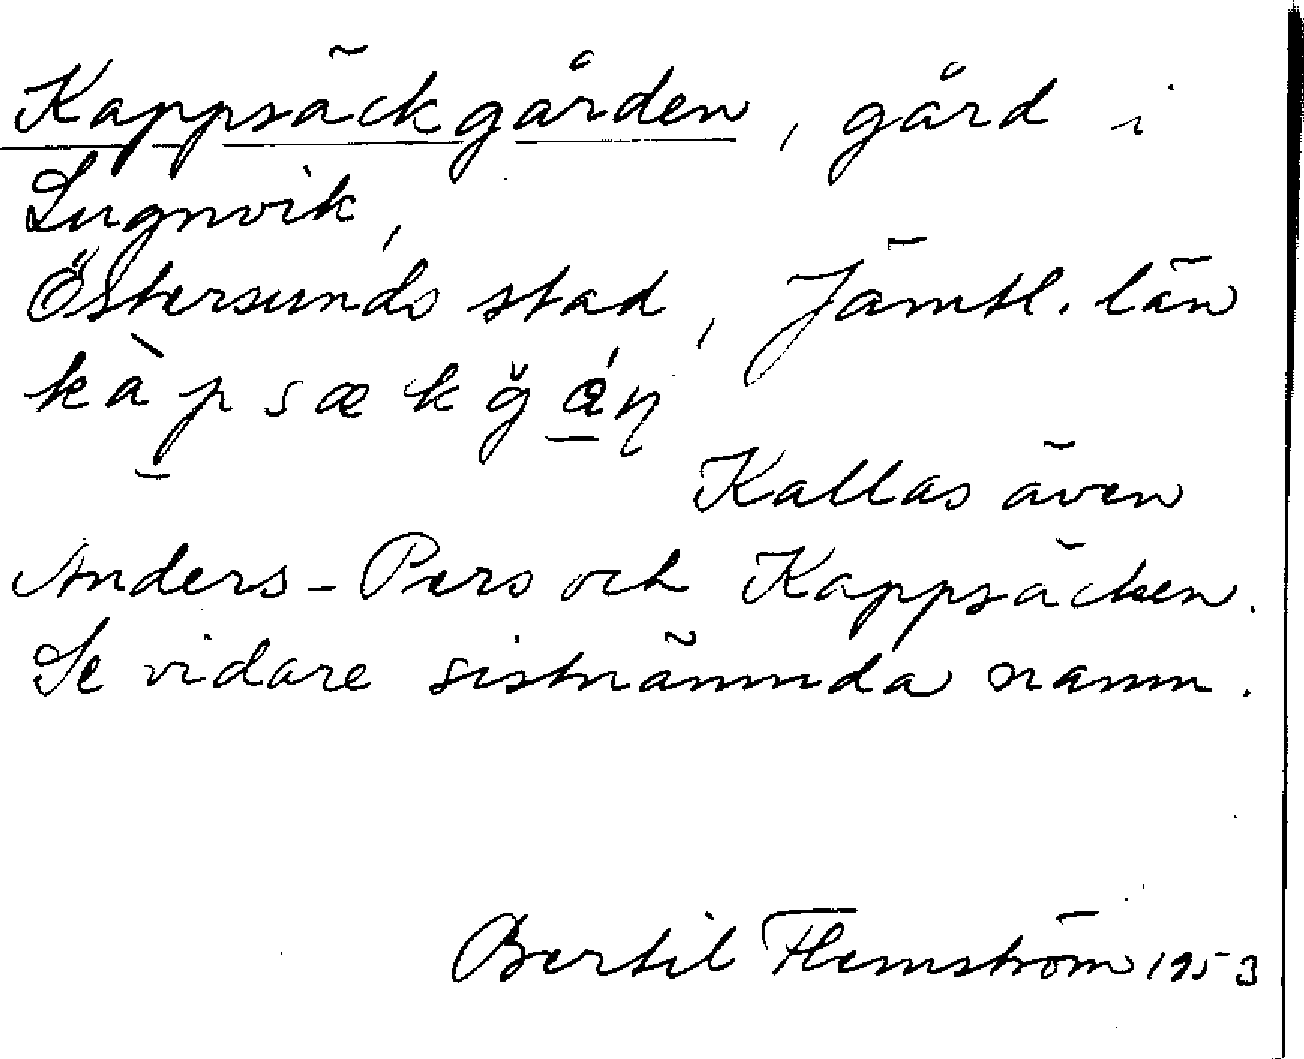 Kappsäckgården, gård i
Lugnvik,
Östersunds stad, Jämtl. län
kàpsækğán̡
Kallas även
Anders-Pers och Kappsäcken.
Se vidare sistnämnda namn.
Bertil Flemström 1953